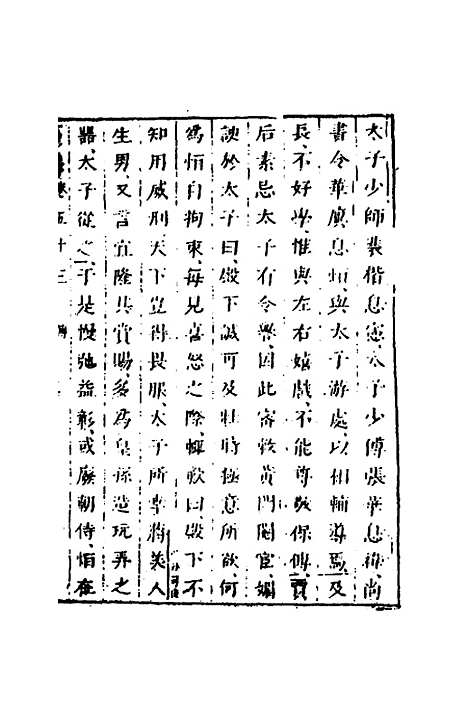 太子少師裴楷息憲太子少傅張華息禕尚
書令華廙息恒與太子游處以相輔導焉及
長不好學惟與左右嬉戲不能尊敬保傅賈
后素忌太子有令譽因此密敕黃門閹宦媚
諛於太子曰殿下誠可及壯時極意所欲何
為恒自拘束每見喜怒之際輒歎曰殿下不
知用威刑天下豈得畏服太子所幸蔣美人
生男又言宜隆其賞賜多為皇孫造玩弄之
器太子從之于是慢弛益彰或廢朝侍恒在
卷五十三